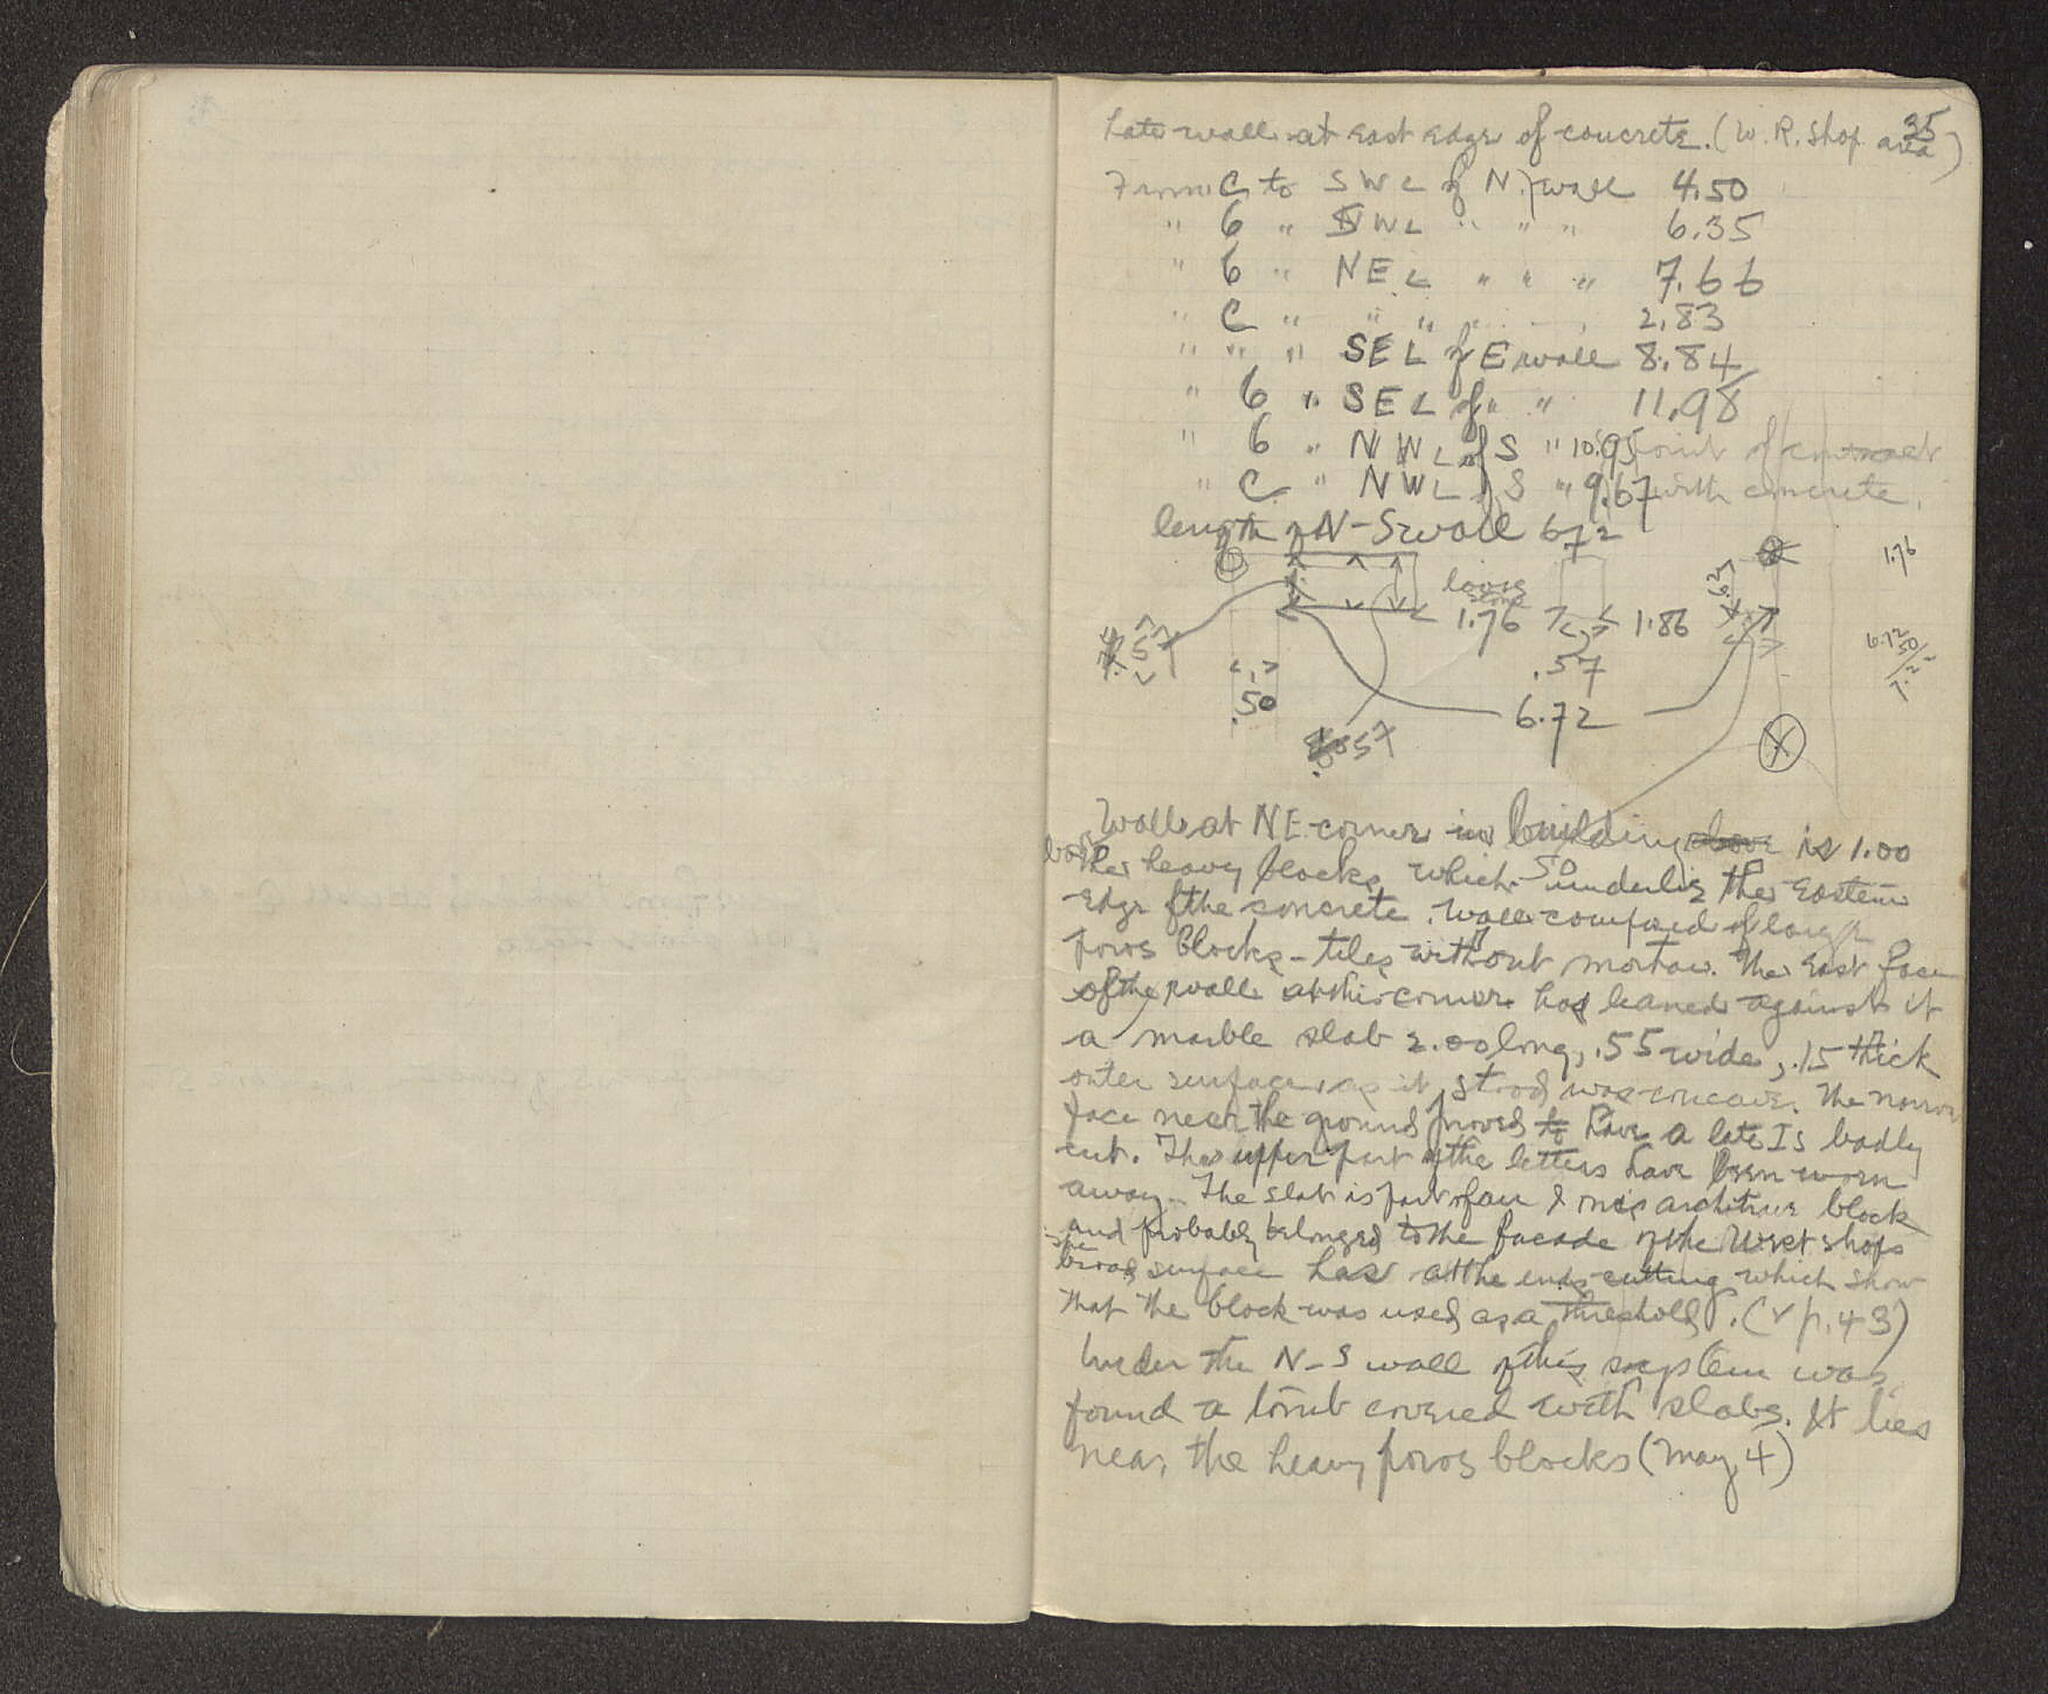 35
Late wall at east edge of concrete. (W. R. Shop area)
From C to SWL of N. wall 4.50
" 6 " NWL " " " 6.35
" 6 " NEL " " " 7.66
" C " " " " 2.83
" " " SEL of E wall 8.84
" 6 " SEL of " " 11.98
" 6 " NWL of S " 10.95 point of contact
" C " NWL of S " 9.67 with concrete
length of N-S wall 672
1.76
1.76 1.86
.57
.57
.50
6.72
6.72
.50
Wall at NE corner in building above is 1.00
the heavy blocks which so underlie the eastern
edge of the concrete. Wall composed of large
poros blocks - tiles without mortar. The east face
of the wall at this corner had leaned against it
a marble slab 2.00 long, .55 wide, .15 thick
outer surface as it stood was concave. The narrow
face near the ground proved to have a late Is badly
cut. The upper part of the letters have been worn
away. The slab is part of an Ionic architrave block
and probably belonged to the facade of the West shops
The broad surface has at the ends cutting which show
that the block was used as a threshold. (v p. 43)
Under the N-S wall of this system was
found a tomb covered with slabs. It lies
near the heavy poros blocks (May 4)